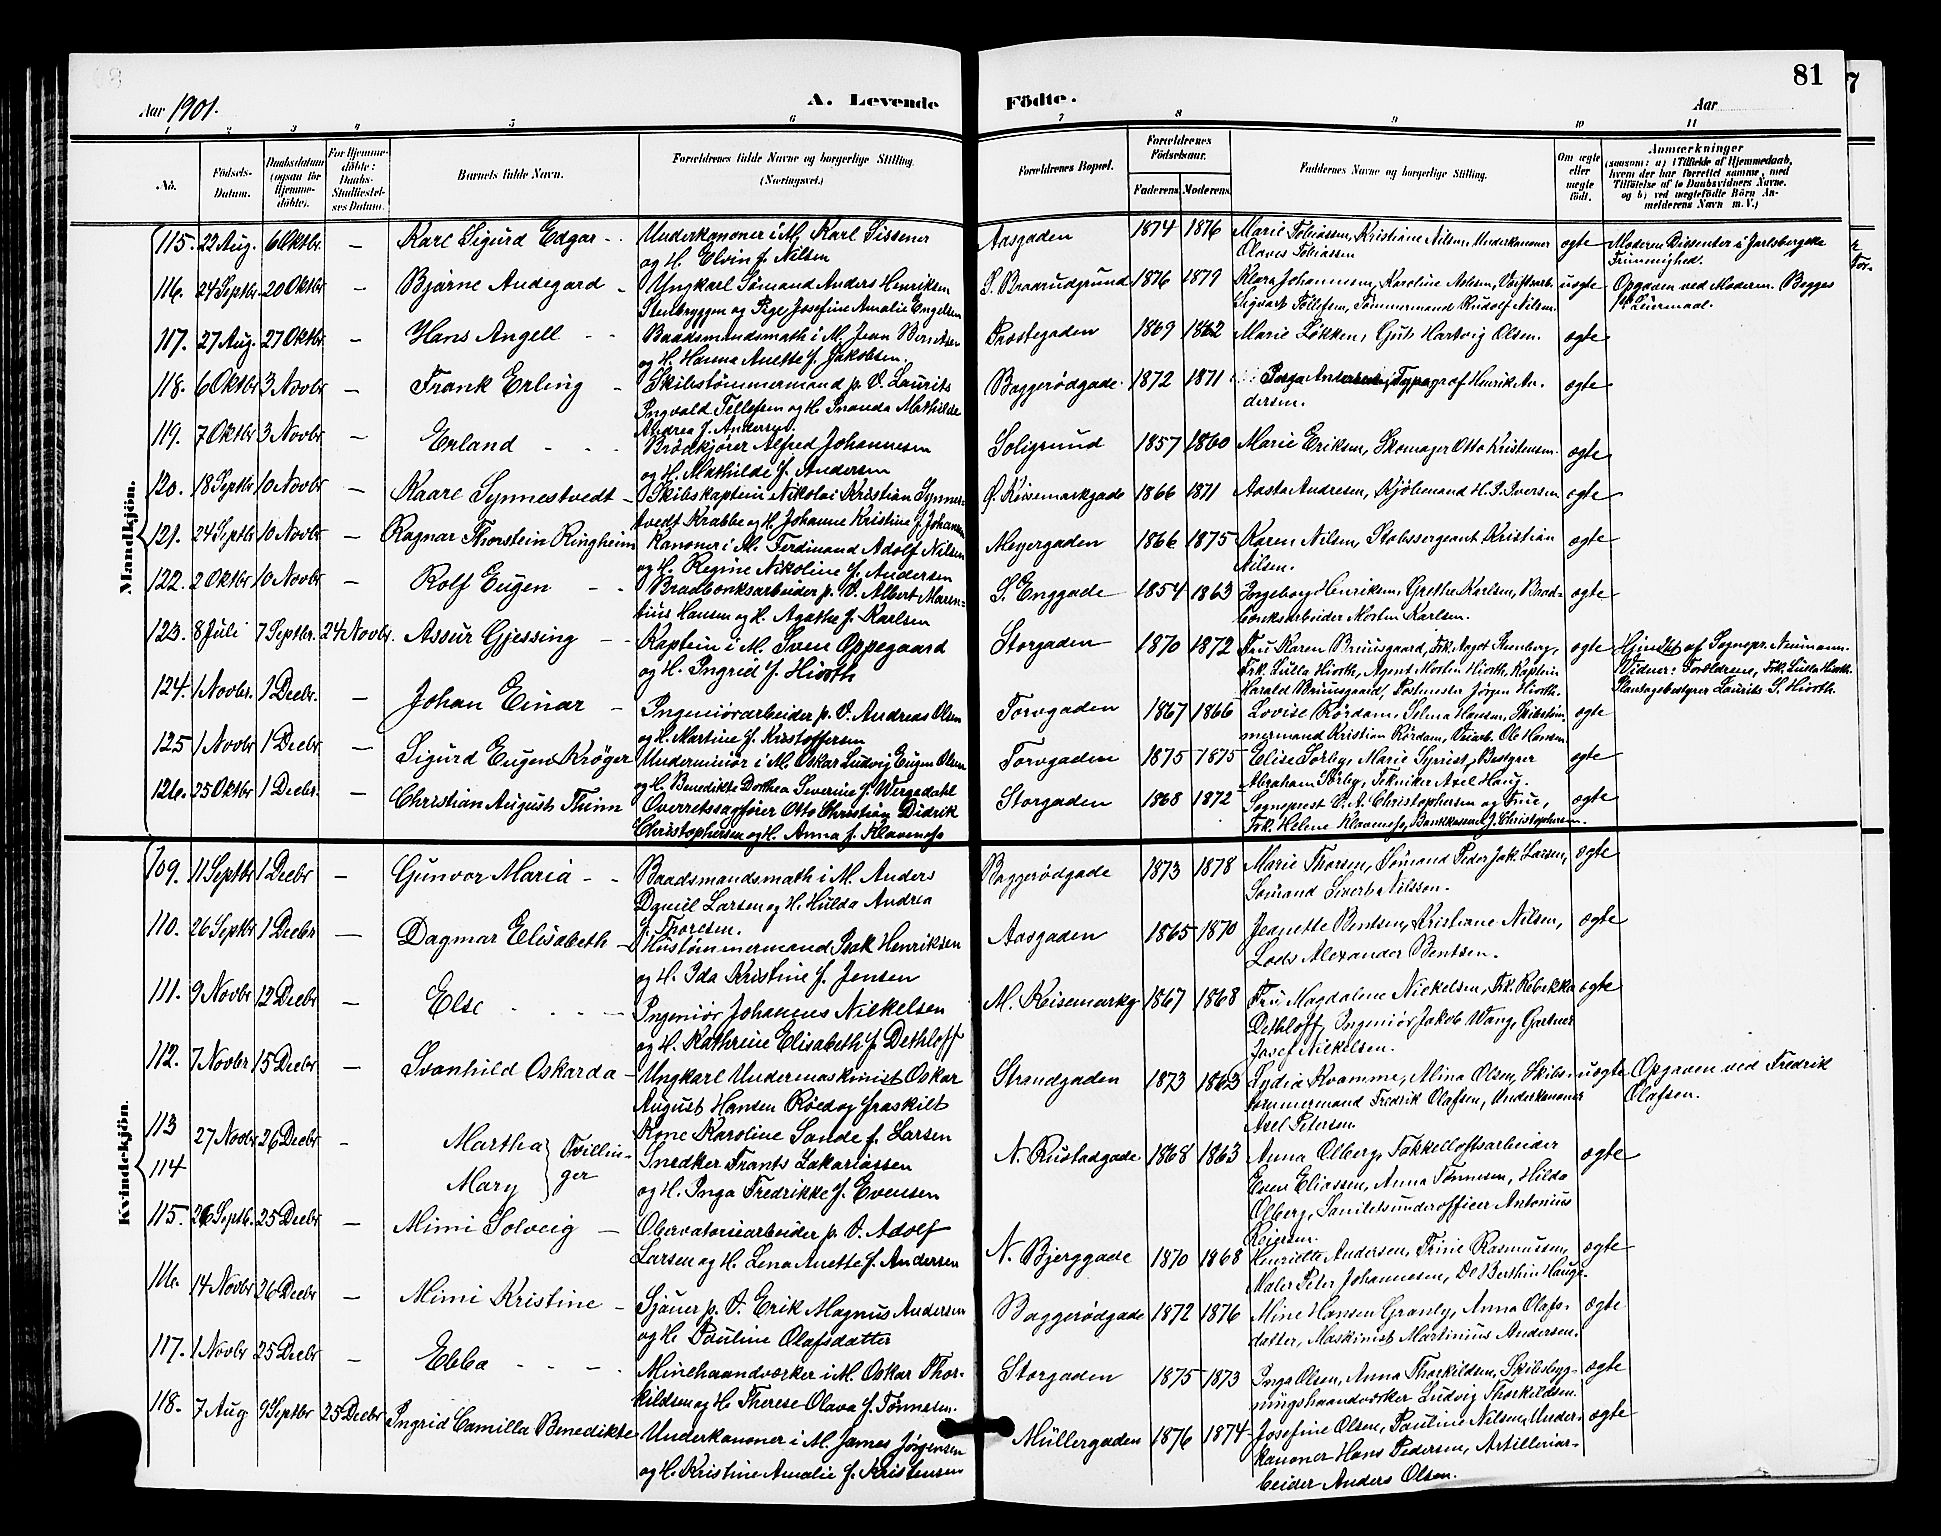 81
Aar 1901.
A. Levende
Födte.
Aar
1 2 3 4 5 6 7 8 9 10 11
No.
Födsels-Datum.
Daabsdatum (ogsaa for Hjemme-döbte).
For Hjemme-döbte: Daabs-Stadfæstel-ses Datum.
Barnets fulde Navn.
Forældrenes fulde Navne og borgerlige Stilling. (Næringsvei.)
Forældrenes Bopæl.
Forældrenes Födselsaar.
Faderens. Moderens.
Faddernes Navne og borgerlige Stilling.
Om ægte eller uægte födt.
Anmærkninger
(saasom: a) i Tilfælde af Hjemmedaab, hvem der har forrettet samme, med Tilföielse af to Daabsvidners Navne, og b) ved uægtefödte Börn An-melderens Navn m. V.)
Mandkjön.
115. 22 Aug. 6 Oktbr. — Karl Sigurd Edgar - - Underkanoner i M. Karl Sissener
og H. Elvin f. Nilsen
Aasgaden 1874 1876 Marie Tobiassen, Kristiane Nilsen, Underkanoner
Olaves Tobiassen
ægte Moderen Dissenter i Jarlsbergske
Frimenighed.
116. 24 Septbr. 20 Oktbr — Bjarne Andegard - Ungkarl Sømand Anders Henriksen
Stenbryggen og Pige Josefine Amalie Engelsen
S. Braarudgrund 1876 1879 Klara Johannesen, Karoline Nilsen, Værftsarb.
Sigvart Tollefsen, Tømmermand Rudolf Nilsen
uægte Opgaven ved Moderen. Begges
1ste Leiermaal.
117. 27 Aug. 27 Oktbr — Hans Angell - - Baadsmandsmath i M. Jean Berntsen
og H. Hanna Anette f. Jakobsen.
Præstegaden 1869 1862 Marie Løkken, Gjüts Hartvig Olsen. ægte
118. 6 Oktbr 3 Novbr — Frank Erling - Skibstømmermand p. V. Laurits
Ingvald Tellefsen og H. Inanda Mathilde
Andrea f. Andersen.
Baggerødgade 1872 1871 Borga Andersen, Typograf Henrik An-
dersen.
ægte
119. 7 Oktbr 3 Novbr — Erland - - - Brødkjører Alfred Johannesen
og H. Mathilde f. Andersen
Soligrund 1857 1860 Marie Eriksen, Skomager Otto Kristensen. ægte
120. 18 Septbr 10 Novbr — Kaare Synnestvedt - Skibskaptein Nikolai Kristian Synnes-
tvedt Krabbe og H. Johanne Kristine f. Johansen
Ø. Keisemarkgade 1866 1871 Aasta Andresen, Kjøbmand H. P. Iversen ægte
121. 24 Septbr 10 Novbr — Ragnar Thorstein Ringheim Kanoner i M. Ferdinand Adolf Nilsen
og H. Regine Nikoline f. Andersen
Meyergaden 1866 1875 Karen Nilsen, Stabssergeant Kristian
Nilsen.
ægte
122. 2 Oktbr 10 Novbr — Rolf Eugen - - Bradbænksarbeider p. V. Albert Maren-
tius Hansen og H. Agathe f. Karlsen
S. Enggade 1854 1863 Ingeborg Henriksen, Grethe Karlsen, Brad-
bænksarbeider Morten Karlsen.
ægte
123. 8 Juli 7 Septbr. 24 Novbr. Assur Gjessing - - Kaptein i M. Sven Oppegaard
og H. Ingrid f. Hiorth
Storgaden 1870 1872 Fru Karen Bruusgaard, Frk. Aagot Homberg,
Frk. Lulla Hiorth, Agent Morten Hiorth, Kaptein
Harald Bruusgaard, Postmester Jørgen Hiorth.
ægte Hjemdøbt af Sognepr. Neumann.
Vidner: Forældrene, Frk. Lulla Hiorth.
Plantagebestyrer Laurits S. Hiorth.
124. 1 Novbr. 1 Decbr. — Johan Einar - Ingeniørarbeider p. V. Andreas Olsen
og H. Martine f. Kristoffersen
Torvgaden 1867 1866 Lovise Rørdam, Selma Hansen, Skibstøm-
mermand Kristian Rørdam, Veiarb. Ole Hansen
ægte
125 1 Novbr 1 Decbr — Sigurd Eugen Krøger Underminør i M. Oskar Ludvig Eugen Olsen
og H. Benedikte Dorthea Severine f. Wergedahl
Torvgaden 1875 1875 Elise Sørby, Marie Syrist, Bestyrer
Abraham Sørby, Tekniker Axel Haug.
ægte
126. 25 Oktbr 1 Decbr. — Christian August Thinn Overretssagfører Otto Christian Didrik
Christophersen og H. Anna f. Klaveness
Storgaden 1868 1872 Sogneprest V. A. Christophersen og Frue,
Frk. Helene Klaveness, Bankkasserer J. Christophersen.
ægte
Kvindekjön.
109. 11 Septbr 1 Decbr — Gunvor Maria - - Baadsmandsmath i M. Anders
Daniel Larsen og H. Hulda Andrea
f. Thoresen.
Baggerødgade 1873 1878 Marie Thorsen, Sømand Peder Jak. Larsen,
Sømand Sivert Nilssen.
ægte
110. 26 Septbr 1 Decbr — Dagmar Elisabeth - Hustømmermand Isak Henriksen
og H. Ida Kristine f. Jensen
Aasgaden 1865 1870 Jeanette Bentsen, Kristiane Nilsen,
Lods Alexander Bentsen.
ægte
111. 9 Novbr 12 Decbr — Else - - - Ingeniør Johannes Nickelsen
og H. Kathrine Elisabeth f. Dethloff
M. Keisemarkg 1867 1868 Fru Magdalene Nickelsen, Frk. Rebekka
Dethloff, Ingeniør Jakob Wang, Gartner
Josef Nickelsen.
ægte
112. 7 Novbr 15 Decbr — Svanhild Oskarda - Ungkarl Undermaskinist Oskar
August Hansen Røed og fraskilt
Kone Karoline Sande f. Larsen
Strandgaden 1873 1863 Lydia Kvamme, Alina Olsen, Skibs-
tømmermand Fredrik Olafsen, Underkanoner
Axel Petersen.
uægte Opgaven ved Fredrik
Olafsen.
113
114
27 Novbr 26 Decbr — Martha
Mary
Tvillin-
ger
Snedker Frants Zakariassen
og H. Inga Fredrikke f. Evensen
N. Rustadgade 1868 1863 Anna Olberg, Takkelloftsarbeider
Even Eliassen, Anna Tønnesen, Hilda
Olberg, Sanitetsunderofficer Antonius
Reiersen.
ægte
115. 26 Septb. 25 Decbr — Mimi Solveig — Observatoriearbeider p. V. Adolf
Larsen og H. Lena Anette f. Andersen
N. Bjerggade 1870 1868 Henriette Andersen, Trine Rasmussen,
Maler Peter Johannesen, Do Berthin Hauge.
ægte
116. 14 Novbr 26 Decbr — Mimi Kristine - Sjauer p. V. Erik Magnus Andersen
og H. Pauline Olafsdatter
Baggerødgade 1872 1876 Mine Hansen Granly, Anna Olafs-
datter, Maskinist Martinius Andersen.
ægte
117. 1 Novbr 25 Decbr — Ebba - - - Minehaandværker i M. Oskar Thor-
kildsen og H. Therese Olava f. Tønnesen.
Storgaden 1875 1873 Inga Olsen, Anna Thorkildsen, Skibsbyg-
ningshaandværker Ludvig Thorkildsen.
ægte
118. 7 Aug 9 Septbr 25 Decbr Ingrid Camilla Benedikte Underkanoner i M. James Jørgensen
og H. Kristine Amalie f. Kristensen
Müllergaden 1876 1874 Josefine Olsen, Pauline Nilsen, Under-
kanoner Hans Pedersen, Artilleriar-
beider Anders Olsen.
ægte